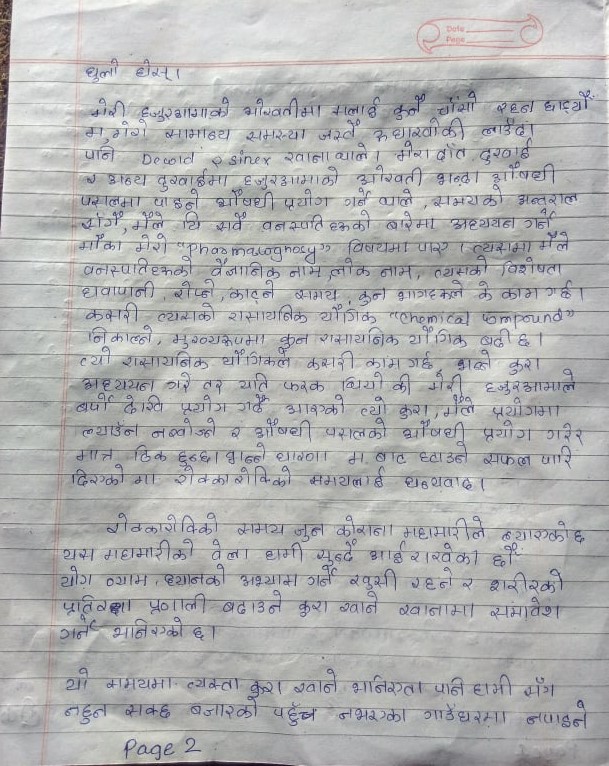 Date
Page
धुनी होस् ।
मेरी हजुरआमाको ओखतीमा मलाई कुनै चाँसो रहन छाड्यो
म, मेरो सामान्य समस्या जस्तै रुघाखोकी लाग्दा
पनि Decold र sinex खानथाले । मेरा दाँत दुखाई
र अन्य दुखाईमा हजुरआमाको ओखती भन्दा औषधी
पसलमा पाइने औषधी प्रयोग गर्न थाले, समयको अन्तराल
सँगै, मैले यि सबै वनस्पतिहरुको बारेमा अध्ययन गर्ने
मौका मेरो "Pharmacognosy" विषयमा पाए । त्यसमा मैले
वनस्पतिहरुको वैज्ञानिक नाम, लोक नाम, त्यसको विशेषता
हावापानी, रोप्ने, काट्ने समय, कुन भागहरुले के काम गर्छ ।
कसरी त्यसको रासायनिक यौगिक "chemical compound"
निकाल्ने, मुख्यरुपमा कुन रासायनिक यौगिक बढी छ ।
त्यो रासायनिक यौगिकले कसरी काम गर्छ भन्ने कुरा
अध्ययन गरे तर यति फरक थियो की मेरी हजुरआमाले
बर्षौ देखि प्रयोग गर्दै आएको त्यो कुरा, मैले प्रयोगमा
ल्याउन नखोज्ने र औषधी पसलको औषधी प्रयोग गरेर
मात्र ठिक हुन्छ भन्ने धारणा म बाट हटाउन सफल पारि
दिएको मा रोक्कारोकिको समयलाई धन्यवाद ।
रोक्कारोकिको समय जुन कोरोना महामारीले ल्याएको छ
यस महामारीको वेला हामी सुन्दै आईराखेका छौं
योग व्याम, ध्यानको अभ्यास गर्ने खुसी रहने र शरीरको
प्रतिरक्षा प्रणाली बढाउने कुरा खाने खानामा समावेश
गर्न भनिएको छ ।
यो समयमा त्यस्ता कुरा खाने भनिएता पनि हामी सँग
नहुन सक्छ बजारको पहुँच नभएका गाउँघरमा नपाइने
Page 2